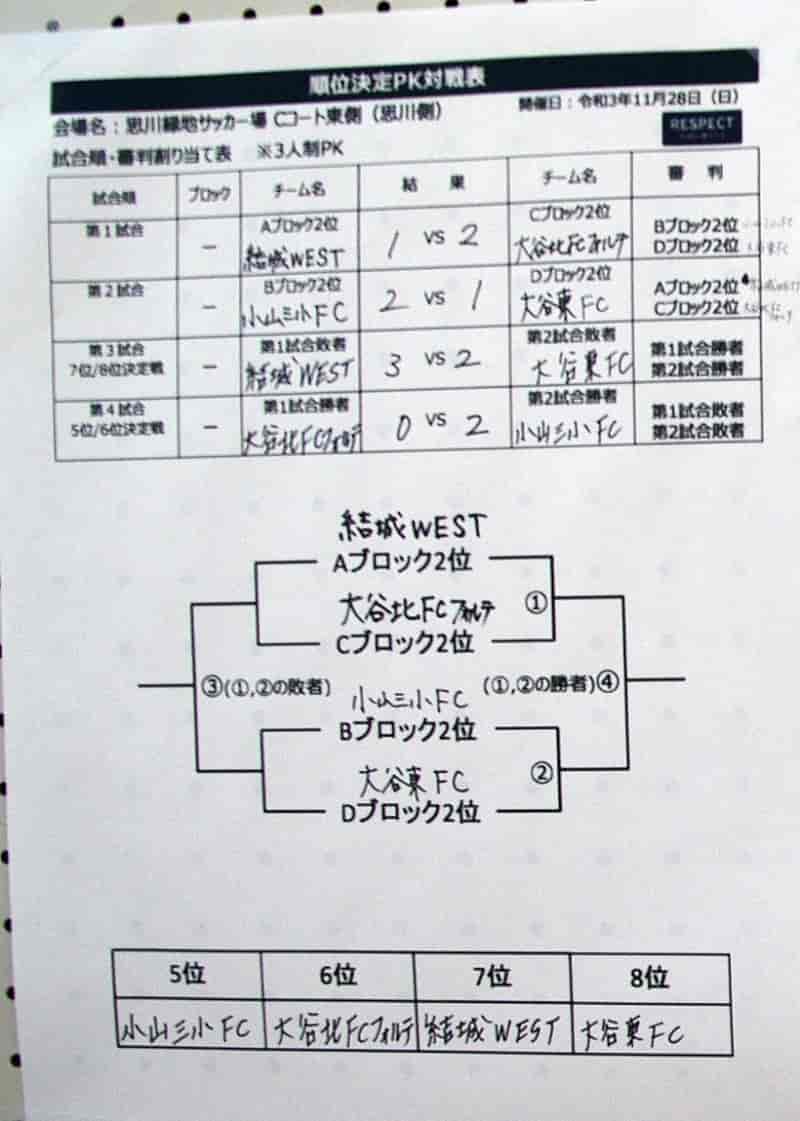 順位決定PK対戦表
会場名：思川緑地サッカー場 Cコート東側（思川側）
開催日：令和3年11月28日（日）
RESPECT
試合順・審判割り当て表　※3人制PK
試合順 ブロック チーム名 結　果 チーム名 審　判
第1試合 － Aブロック2位 Cブロック2位 Bブロック2位
結城WEST 1 VS 2 大谷北FCフォルテ Dブロック2位
第2試合 － Bブロック2位 Dブロック2位 Aブロック2位
小山三小FC 2 VS 1 大谷東FC Cブロック2位
第3試合 － 第1試合敗者 第2試合敗者 第1試合勝者
7位/8位決定戦 結城WEST 3 VS 2 大谷東FC 第2試合勝者
第4試合 － 第1試合勝者 第2試合勝者 第1試合敗者
5位/6位決定戦 大谷北FCフォルテ 0 VS 2 小山三小FC 第2試合敗者
結城WEST
Aブロック2位
大谷北FCフォルテ ①
Cブロック2位
③(①,②の敗者) (①,②の勝者)④
小山三小FC
Bブロック2位
大谷東FC ②
Dブロック2位
5位 6位 7位 8位
小山三小FC 大谷北FCフォルテ 結城WEST 大谷東FC